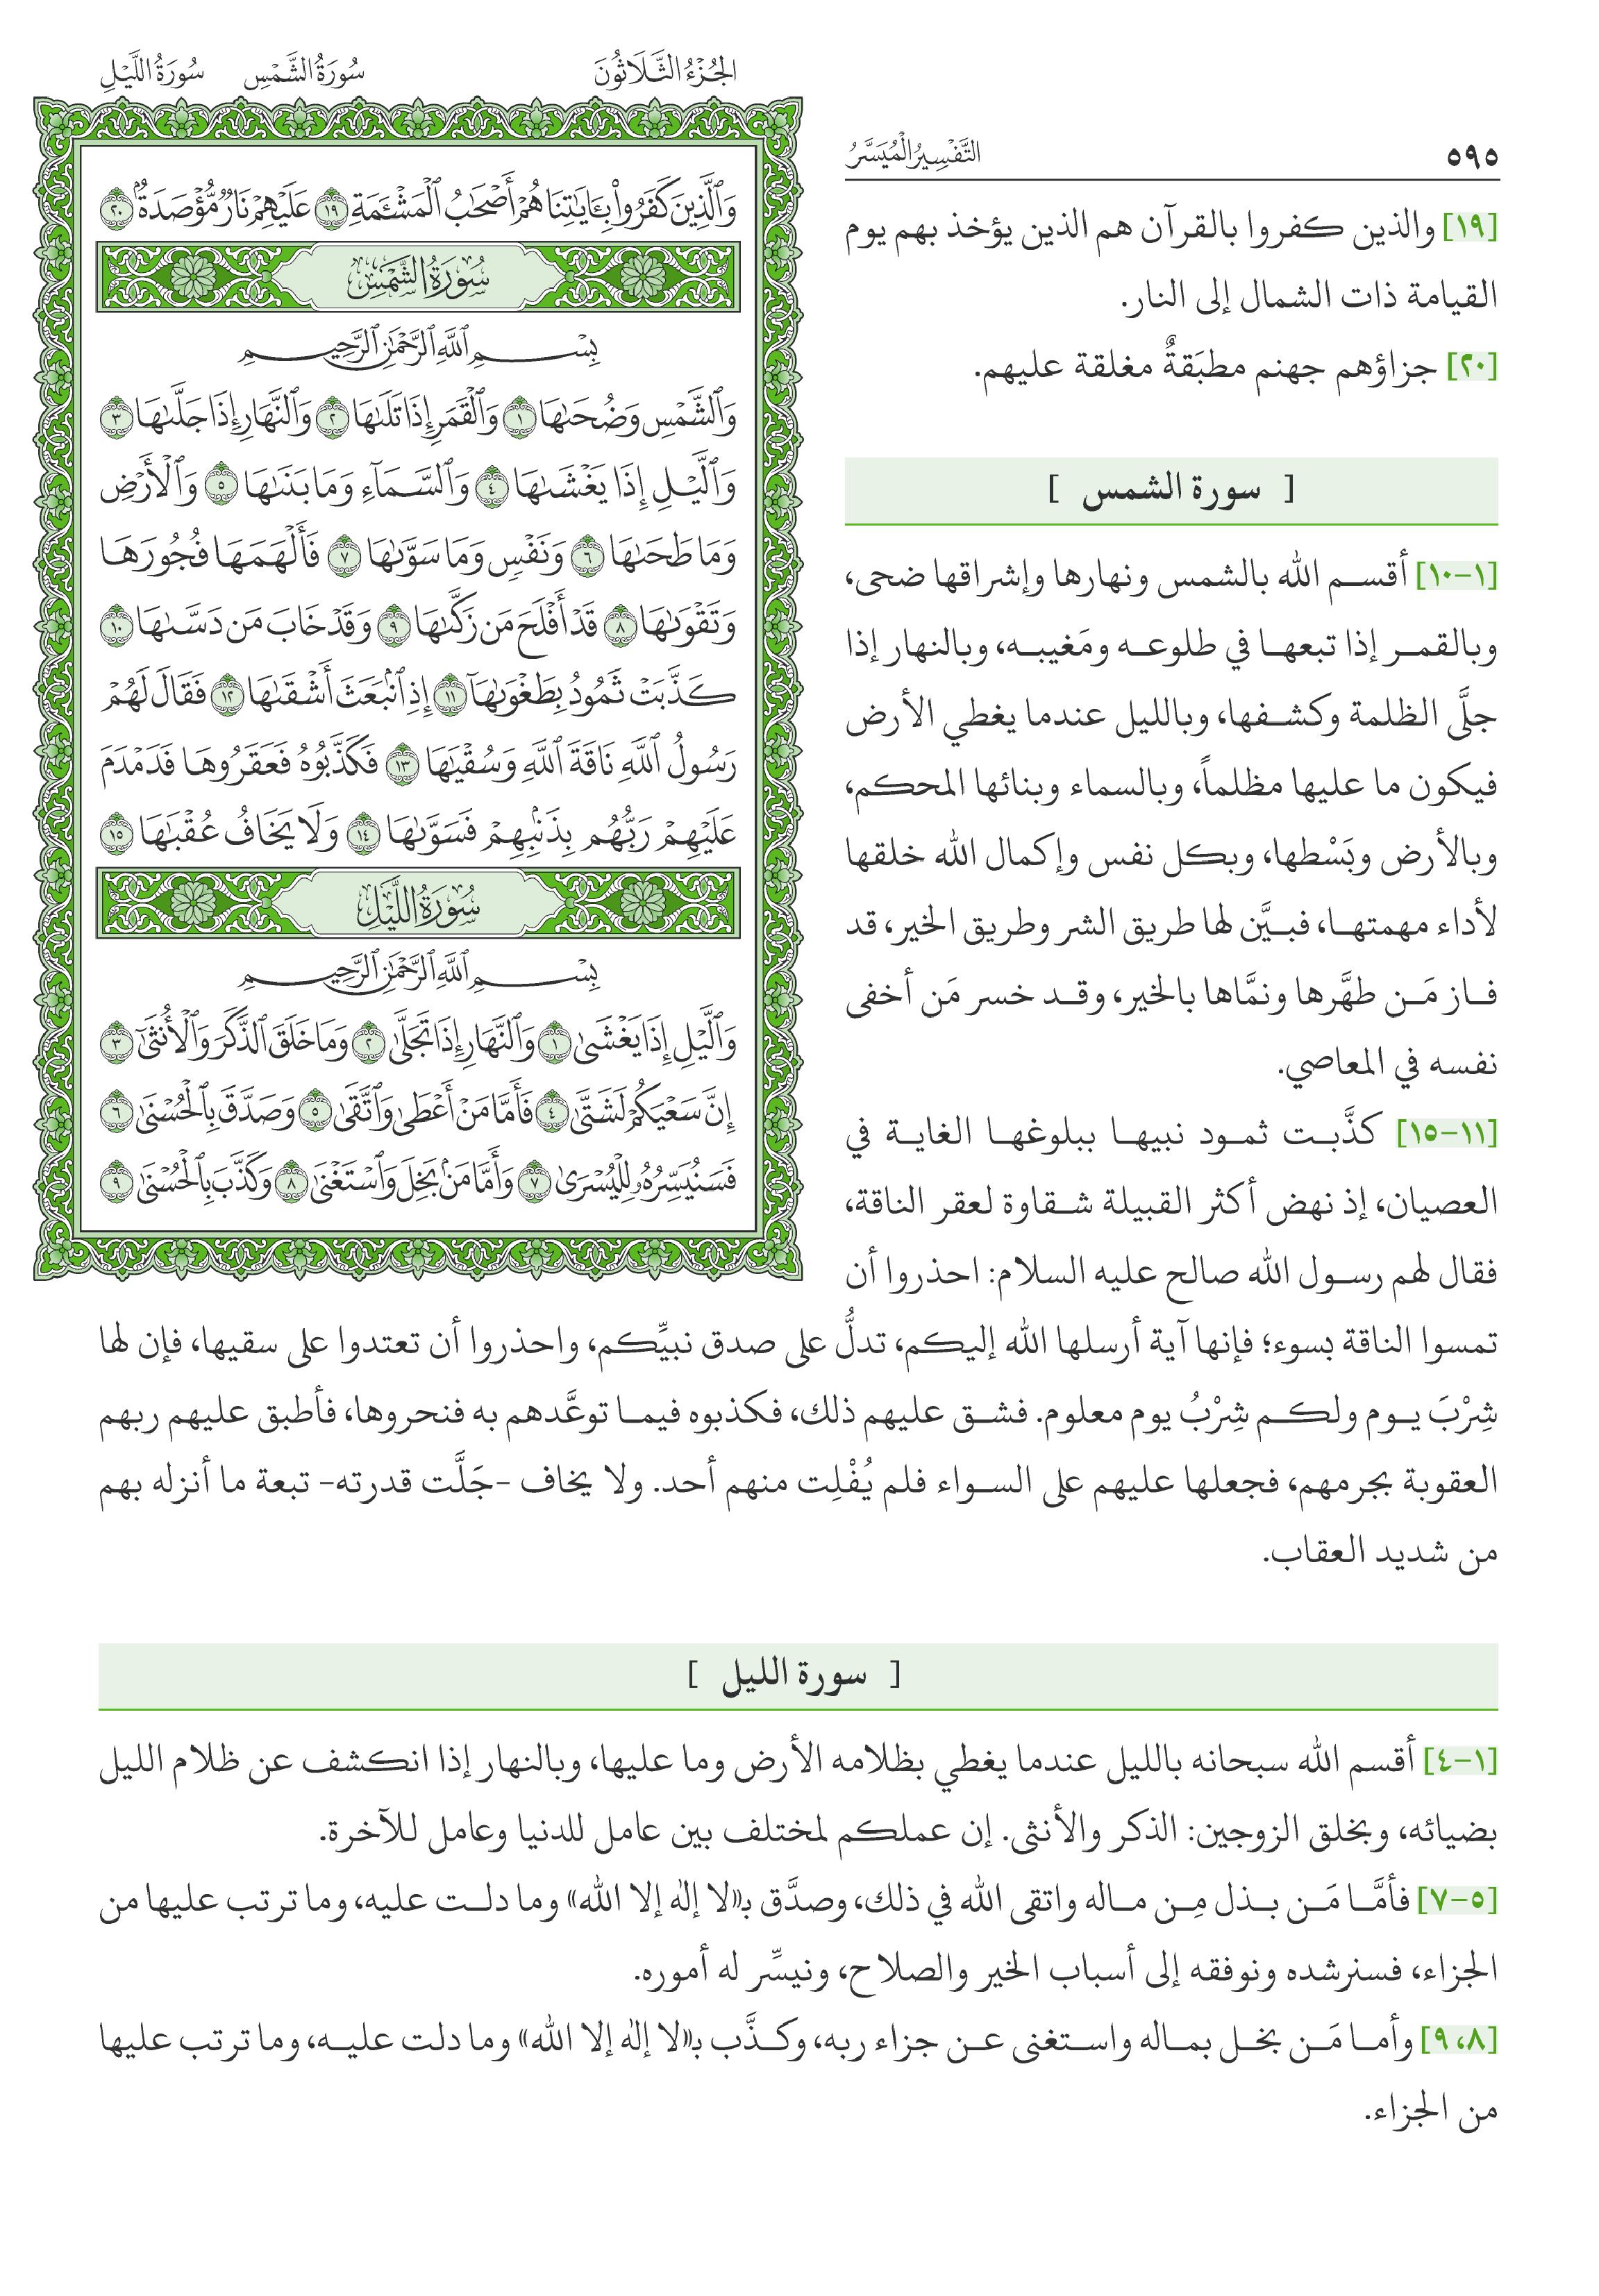 الجُزْءُ الثَّلَاثُونَ سُورَةُ الشَّمْسِ سُورَةُ اللَّيْلِ
وَٱلَّذِينَ كَفَرُواْ بِـَٔايَٰتِنَا هُمْ أَصْحَٰبُ ٱلْمَشْـَٔمَةِ ١٩ عَلَيْهِمْ نَارٌ مُّؤْصَدَةٌۢ ٢٠
سُورَةُ الشَّمْسِ
بِسْمِ ٱللَّهِ ٱلرَّحْمَٰنِ ٱلرَّحِيمِ
وَٱلشَّمْسِ وَضُحَىٰهَا ١ وَٱلْقَمَرِ إِذَا تَلَىٰهَا ٢ وَٱلنَّهَارِ إِذَا جَلَّىٰهَا ٣
وَٱلَّيْلِ إِذَا يَغْشَىٰهَا ٤ وَٱلسَّمَآءِ وَمَا بَنَىٰهَا ٥ وَٱلْأَرْضِ
وَمَا طَحَىٰهَا ٦ وَنَفْسٍ وَمَا سَوَّىٰهَا ٧ فَأَلْهَمَهَا فُجُورَهَا
وَتَقْوَىٰهَا ٨ قَدْ أَفْلَحَ مَن زَكَّىٰهَا ٩ وَقَدْ خَابَ مَن دَسَّىٰهَا ١٠
كَذَّبَتْ ثَمُودُ بِطَغْوَىٰهَآ ١١ إِذِ ٱنۢبَعَثَ أَشْقَىٰهَا ١٢ فَقَالَ لَهُمْ
رَسُولُ ٱللَّهِ نَاقَةَ ٱللَّهِ وَسُقْيَٰهَا ١٣ فَكَذَّبُوهُ فَعَقَرُوهَا فَدَمْدَمَ
عَلَيْهِمْ رَبُّهُم بِذَنۢبِهِمْ فَسَوَّىٰهَا ١٤ وَلَا يَخَافُ عُقْبَٰهَا ١٥
سُورَةُ اللَّيْلِ
بِسْمِ ٱللَّهِ ٱلرَّحْمَٰنِ ٱلرَّحِيمِ
وَٱلَّيْلِ إِذَا يَغْشَىٰ ١ وَٱلنَّهَارِ إِذَا تَجَلَّىٰ ٢ وَمَا خَلَقَ ٱلذَّكَرَ وَٱلْأُنثَىٰٓ ٣
إِنَّ سَعْيَكُمْ لَشَتَّىٰ ٤ فَأَمَّا مَنْ أَعْطَىٰ وَٱتَّقَىٰ ٥ وَصَدَّقَ بِٱلْحُسْنَىٰ ٦
فَسَنُيَسِّرُهُۥ لِلْيُسْرَىٰ ٧ وَأَمَّا مَنۢ بَخِلَ وَٱسْتَغْنَىٰ ٨ وَكَذَّبَ بِٱلْحُسْنَىٰ ٩
٥٩٥ التَّفْسِيرُ الْمُيَسَّرُ
[١٩] والذين كفروا بالقرآن هم الذين يؤخذ بهم يوم
القيامة ذات الشمال إلى النار.
[٢٠] جزاؤهم جهنم مطبَقةٌ مغلقة عليهم.
[ سورة الشمس ]
[١-١٠] أقسم الله بالشمس ونهارها وإشراقها ضحى،
وبالقمر إذا تبعها في طلوعه ومَغيبه، وبالنهار إذا
جلَّى الظلمة وكشفها، وبالليل عندما يغطي الأرض
فيكون ما عليها مظلماً، وبالسماء وبنائها المحكم،
وبالأرض وبَسْطها، وبكل نفس وإكمال الله خلقها
لأداء مهمتها، فبيَّن لها طريق الشر وطريق الخير، قد
فاز مَن طهَّرها ونمَّاها بالخير، وقد خسر مَن أخفى
نفسه في المعاصي.
[١١-١٥] كذَّبت ثمود نبيها ببلوغها الغاية في
العصيان، إذ نهض أكثر القبيلة شقاوة لعقر الناقة،
فقال لهم رسول الله صالح عليه السلام: احذروا أن
تمسوا الناقة بسوء؛ فإنها آية أرسلها الله إليكم، تدلُّ على صدق نبيِّكم، واحذروا أن تعتدوا على سقيها، فإن لها
شِرْبَ يوم ولكم شِرْبُ يوم معلوم. فشق عليهم ذلك، فكذبوه فيما توعَّدهم به فنحروها، فأطبق عليهم ربهم
العقوبة بجرمهم، فجعلها عليهم على السواء فلم يُفْلِت منهم أحد. ولا يخاف -جَلَّت قدرته- تبعة ما أنزله بهم
من شديد العقاب.
[ سورة الليل ]
[١-٤] أقسم الله سبحانه بالليل عندما يغطي بظلامه الأرض وما عليها، وبالنهار إذا انكشف عن ظلام الليل
بضيائه، وبخلق الزوجين: الذكر والأنثى. إن عملكم لمختلف بين عامل للدنيا وعامل للآخرة.
[٥-٧] فأمَّا مَن بذل مِن ماله واتقى الله في ذلك، وصدَّق بـ«لا إلٰه إلا الله» وما دلت عليه، وما ترتب عليها من
الجزاء، فسنرشده ونوفقه إلى أسباب الخير والصلاح، ونيسِّر له أموره.
[٨، ٩] وأما مَن بخل بماله واستغنى عن جزاء ربه، وكذَّب بـ«لا إلٰه إلا الله» وما دلت عليه، وما ترتب عليها
من الجزاء.